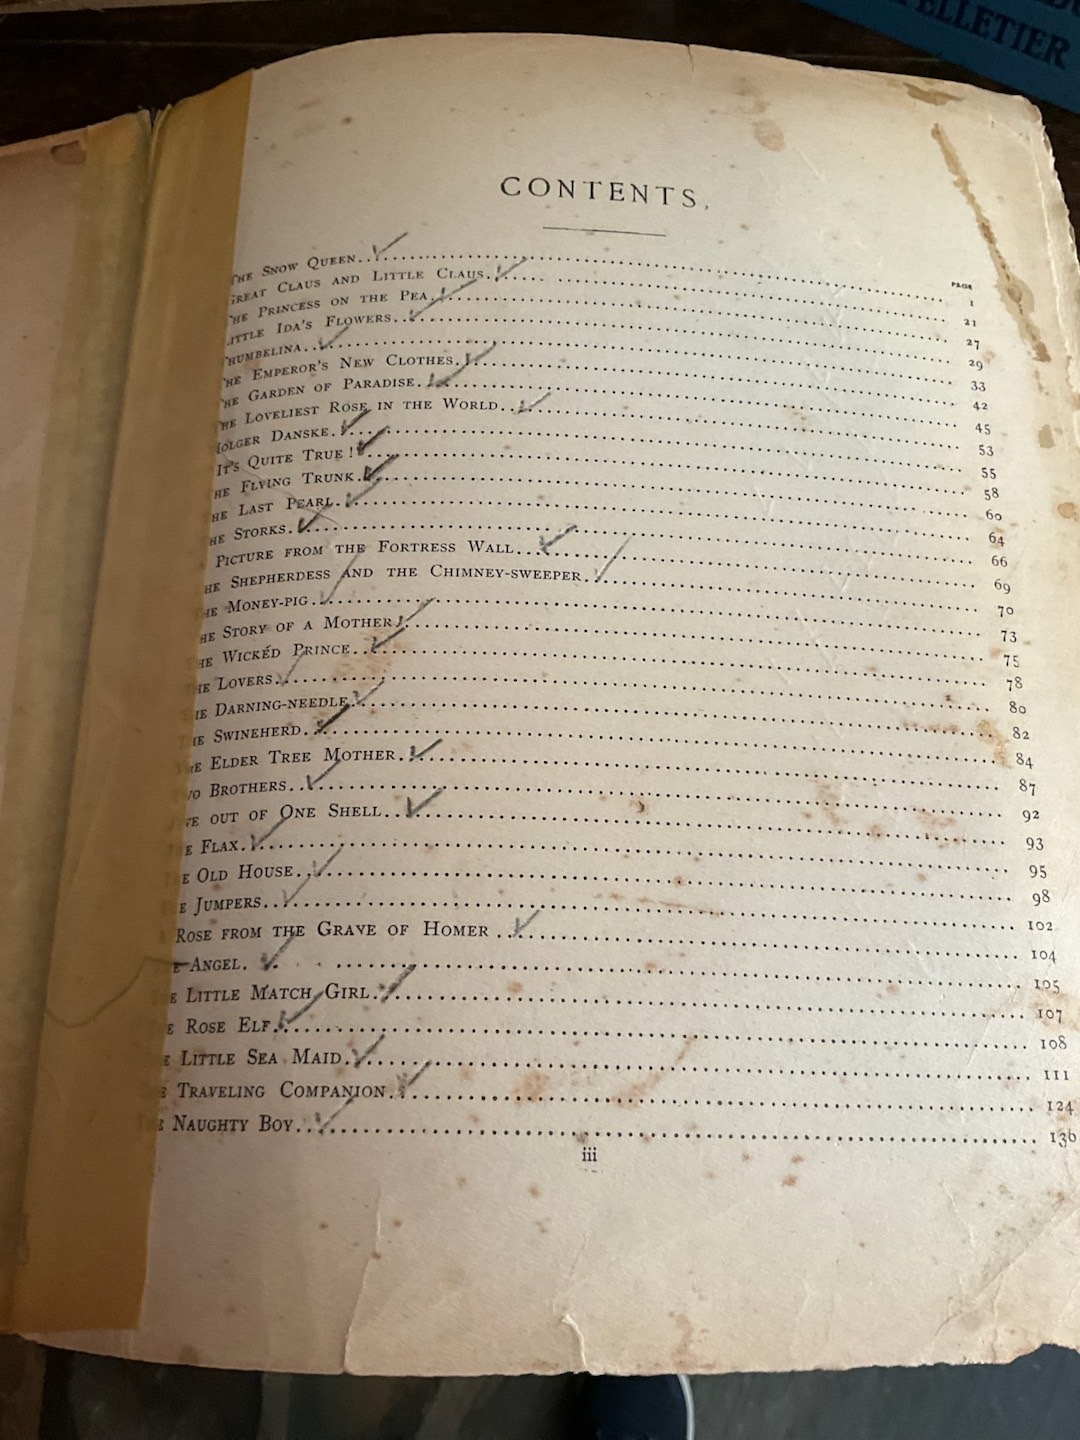 PELLETIER
CONTENTS.
PAGE
THE SNOW QUEEN 1
GREAT CLAUS AND LITTLE CLAUS 21
HE PRINCESS ON THE PEA 27
ITTLE IDA'S FLOWERS 29
HUMBELINA 33
HE EMPEROR'S NEW CLOTHES 42
HE GARDEN OF PARADISE 45
HE LOVELIEST ROSE IN THE WORLD 53
HOLGER DANSKE 55
IT'S QUITE TRUE! 58
HE FLYING TRUNK 60
HE LAST PEARL 64
HE STORKS 66
PICTURE FROM THE FORTRESS WALL 69
HE SHEPHERDESS AND THE CHIMNEY-SWEEPER 70
HE MONEY-PIG 73
HE STORY OF A MOTHER 75
HE WICKED PRINCE 78
HE LOVERS 80
HE DARNING-NEEDLE 82
HE SWINEHERD 84
HE ELDER TREE MOTHER 87
WO BROTHERS 92
VE OUT OF ONE SHELL 93
E FLAX 95
E OLD HOUSE 98
E JUMPERS 102
ROSE FROM THE GRAVE OF HOMER 104
E ANGEL 105
E LITTLE MATCH GIRL 107
E ROSE ELF 108
E LITTLE SEA MAID 111
E TRAVELING COMPANION 124
E NAUGHTY BOY 136
iii